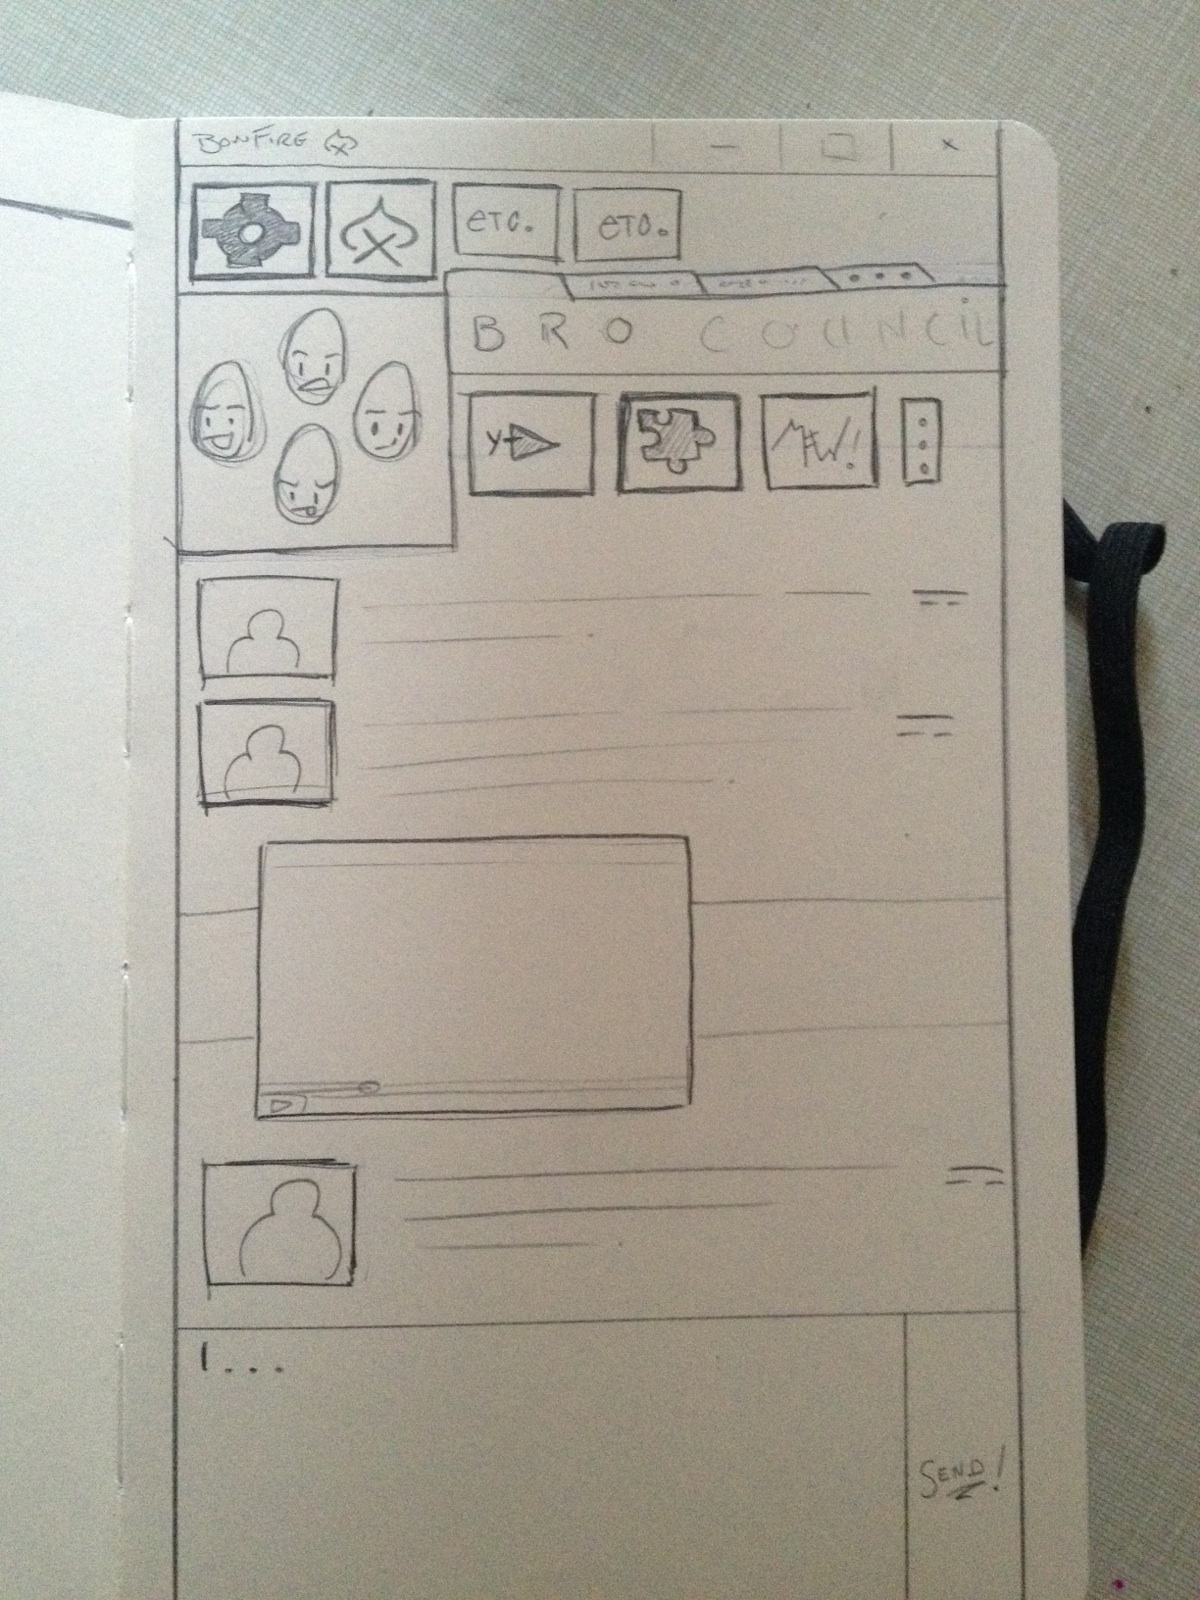 BONFIRE
ETC. ETC.
BRO COUNCIL
MEW!
SEND!